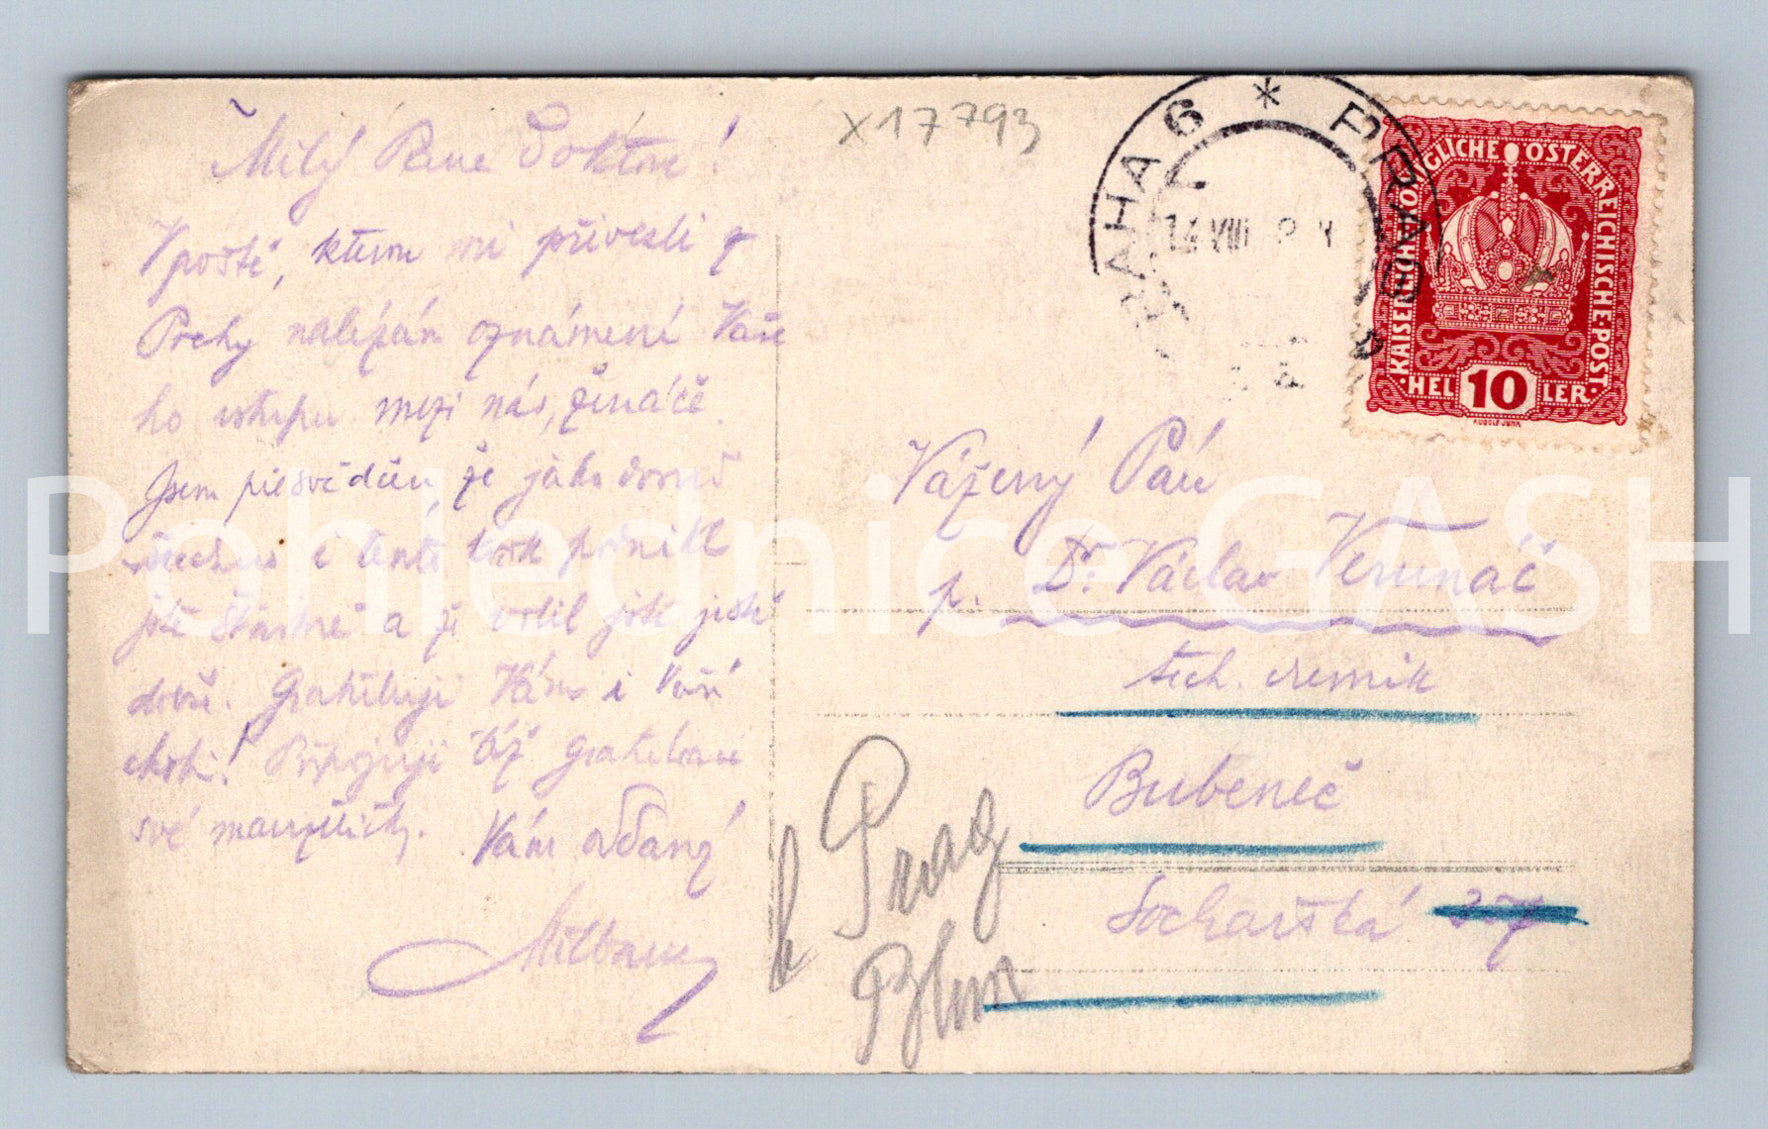 Milý Pane Doktore!
V poště, kterou mi přivezli z
Prahy nalézám oznámení Vaše
ho vstupu mezi nás, ženáče.
Jsem přesvědčen, že jako
i tento krok
jste šťastně a že volil jste jistě
dobře. Gratuluji Vám i Vaší
choti! Připojuji též gratulaci
své manželky. Vám oddaný
X17793
PRAHA 6 * PRAG 6
14 VIII
KAISERLICHE KÖNIGLICHE ÖSTERREICHISCHE POST
HELLER
10
RUDOLF JUNK
Vážený Pán
p. Dr. Václav Verunáč
tech. chemik
Bubeneč
Sochařská
Prag
Pohlednice GASH